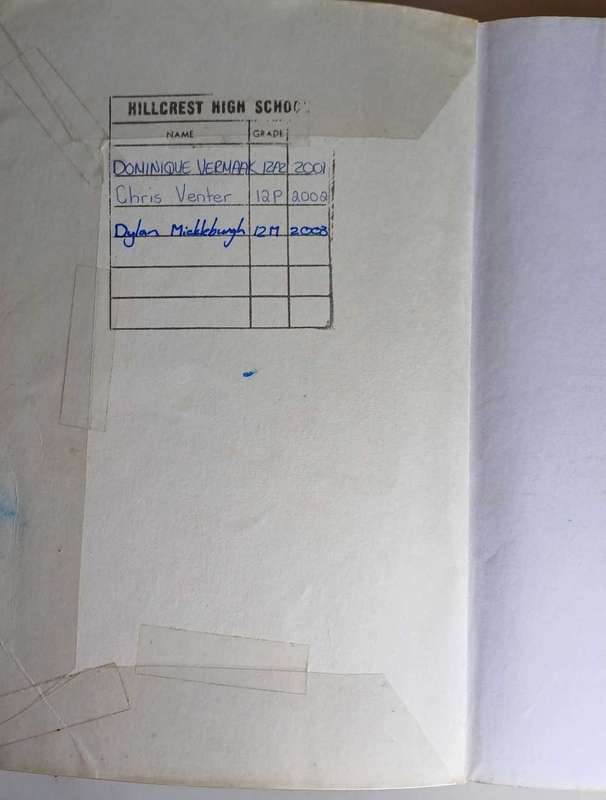 HILLCREST HIGH SCHOOL
NAME GRADE
DOMINIQUE VERMAAK 12A2 2001
Chris Venter 12P 2002
Dylan Mickleburgh 12M 2003